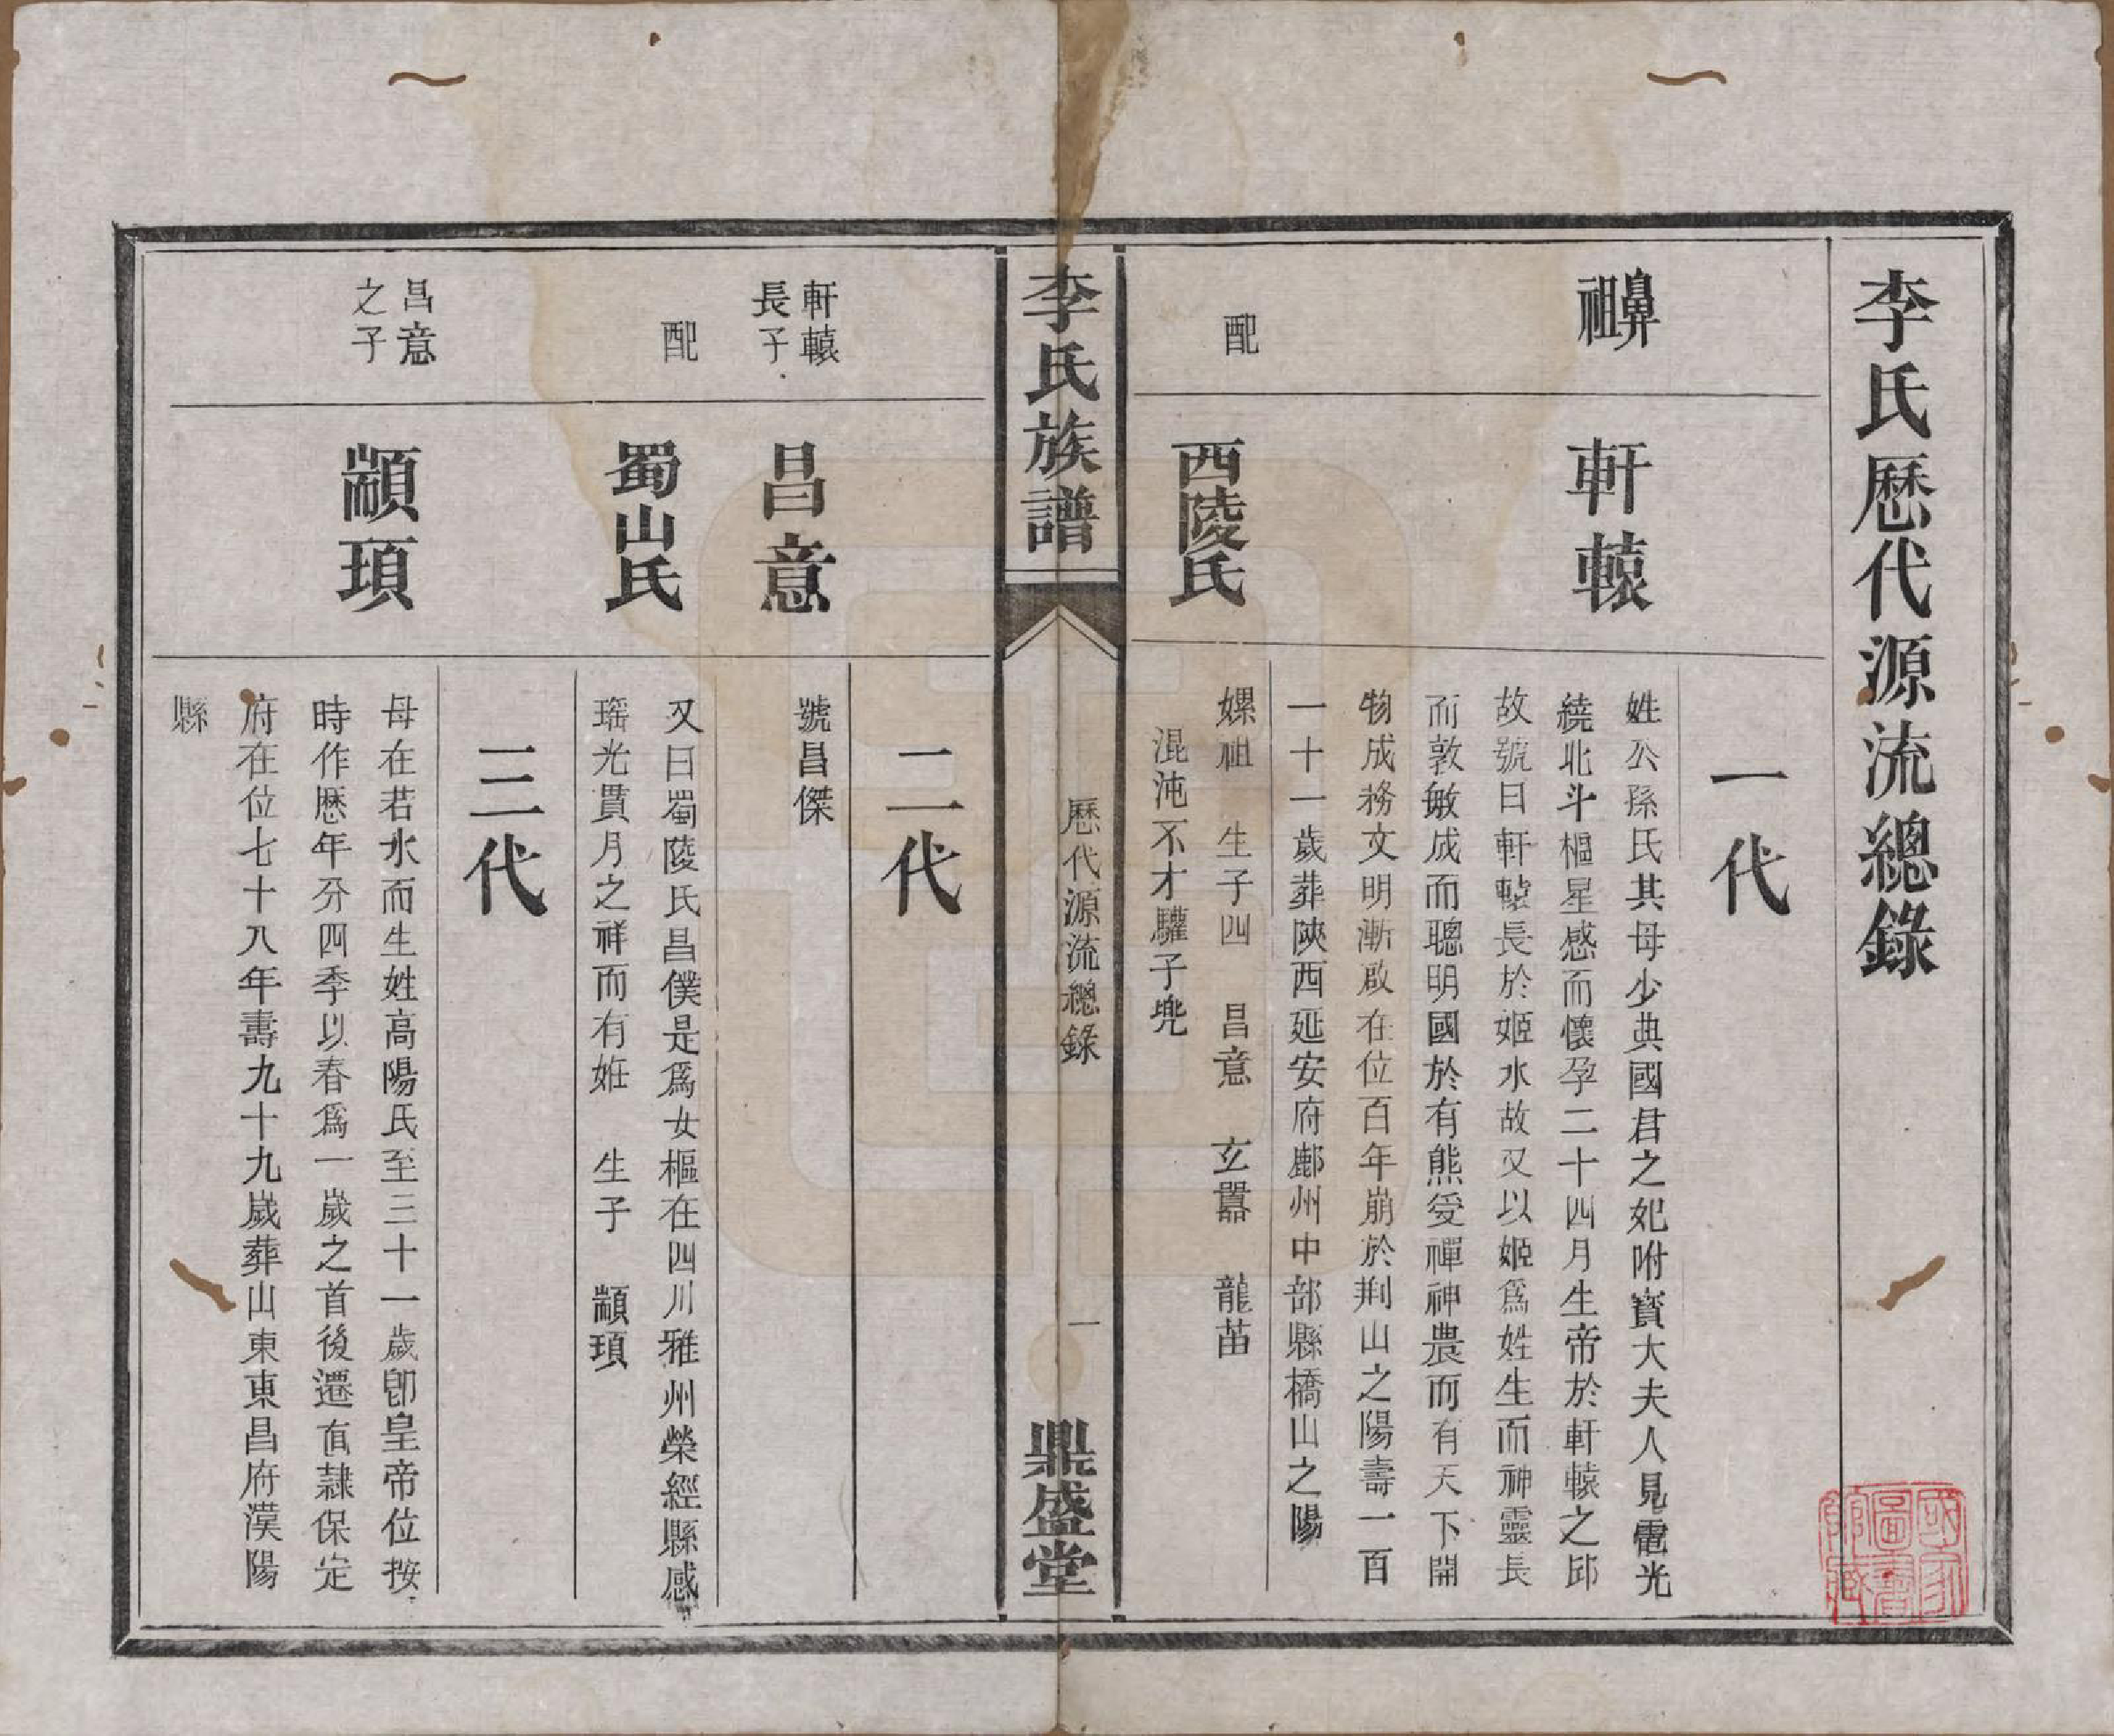 李氏歷代源流總錄
一代
鼻祖
軒轅
姓公孫氏其母少典國君之妃附寳大夫人見電光
繞北斗樞星感而懷孕二十四月生帝於軒轅之邱
故號曰軒轅長於姬水故又以姬爲姓生而神靈長
而敦敏成而聰明國於有熊受禪神農而有天下開
物成務文明漸啟在位百年崩於荆山之陽壽一百
一十一歲葬陝西延安府鄜州中部縣橋山之陽
配
西陵氏
嫘祖 生子四 昌意 玄囂 龍苗
混沌不才驩子兜
李氏族譜
歷代源流總錄
一
鼎盛堂
二代
軒轅
長子
昌意
號昌傑
配
蜀山氏
又曰蜀陵氏昌僕是爲女樞在四川雅州榮經縣感
瑶光貫月之祥而有娠 生子 顓頊
三代
昌意
之子
顓頊
母在若水而生姓高陽氏至三十一歲卽皇帝位按
時作歷年分四季以春爲一歲之首後遷直隷保定
府在位七十八年壽九十九歲葬山東東昌府濮陽
縣
國家
圖書
館藏